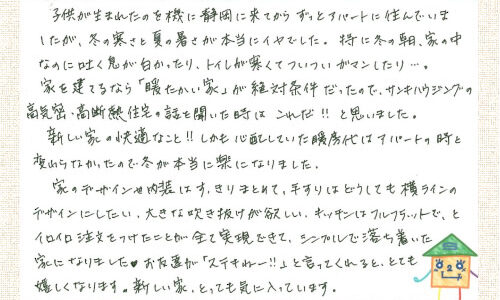 子供が生まれたのを機に静岡に来てからずっとアパートに住んでいま
したが、冬の寒さと夏の暑さが本当にイヤでした。特に冬の朝、家の中
なのに吐く息が白かったり、トイレが寒くてついついガマンしたり…。
家を建てるなら「暖たかい家」が絶対条件だったので、サンキハウジングの
高気密・高断熱住宅の話を聞いた時は これだ!! と思いました。
新しい家の快適なこと!! しかも心配していた暖房代はアパートの時と
変わらなかったので冬が本当に楽になりました。
家のデザインや内装はすっきりまとめて、手すりはどうしても横ラインの
デザインにしたい、大きな吹き抜けが欲しい、キッチンはフルフラットで、と
イロイロ注文をつけたことが全て実現できて、シンプルで落ち着いた
家になりました♥ お友達が「ステキねー!!」と言ってくれると、とても
嬉しくなります。新しい家、とっても気に入っています。